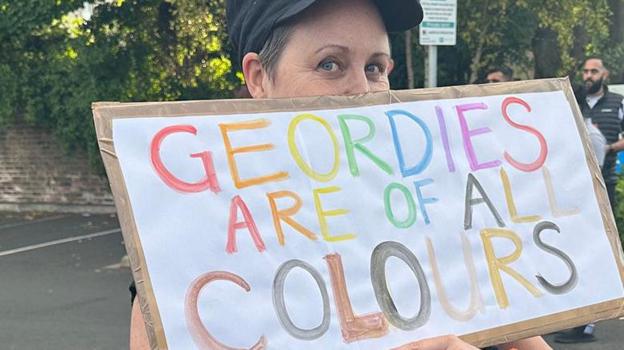 GEORDIES
ARE OF ALL
COLOURS